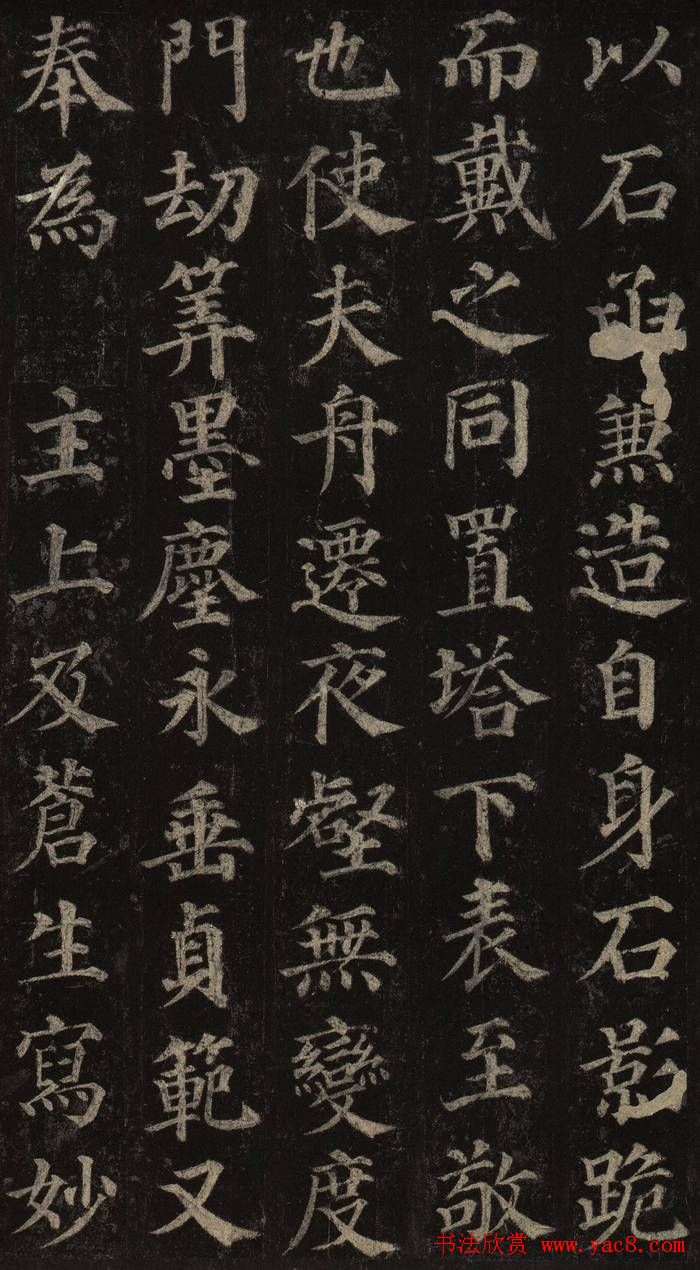 以石函兼造自身石影跪
而戴之同置塔下表至敬
也使夫舟遷夜壑無變度
門劫筭墨塵永垂貞範又
奉為主上及蒼生寫妙
书法欣赏 www.yac8.com